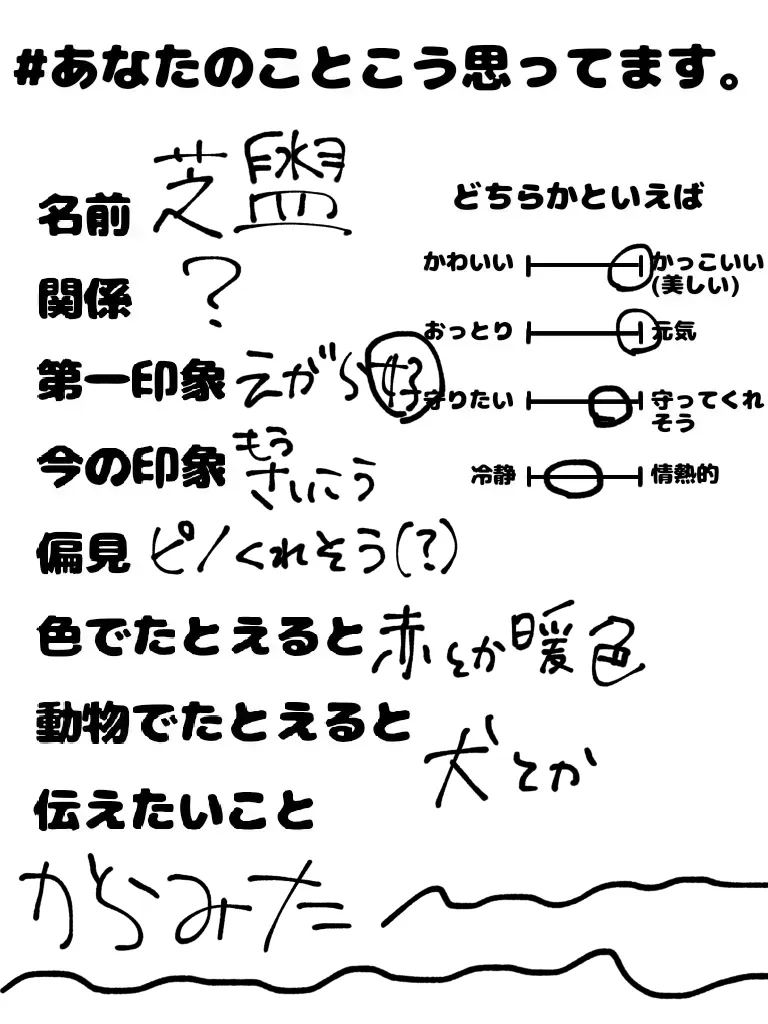 #あなたのことこう思ってます。
名前 芝盥
関係 ?
第一印象 えがら好
今の印象 もう
さいこう
偏見 ピノくれそう(?)
色でたとえると 赤とか暖色
動物でたとえると 犬とか
伝えたいこと
からみた
どちらかといえば
かわいい かっこいい
(美しい)
おっとり 元気
守りたい 守ってくれ
そう
冷静 情熱的